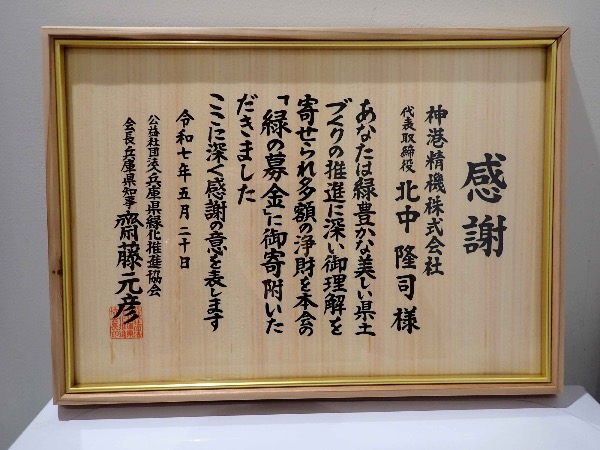 感謝
神港精機株式会社
代表取締役 北中隆司様
あなたは緑豊かな美しい県土
づくりの推進に深い御理解を
寄せられ多額の浄財を本会の
「緑の募金」に御寄附いた
だきました
ここに深く感謝の意を表します
令和七年五月二十日
公益社団法人兵庫県緑化推進協会
会長兵庫県知事 齋藤元彦